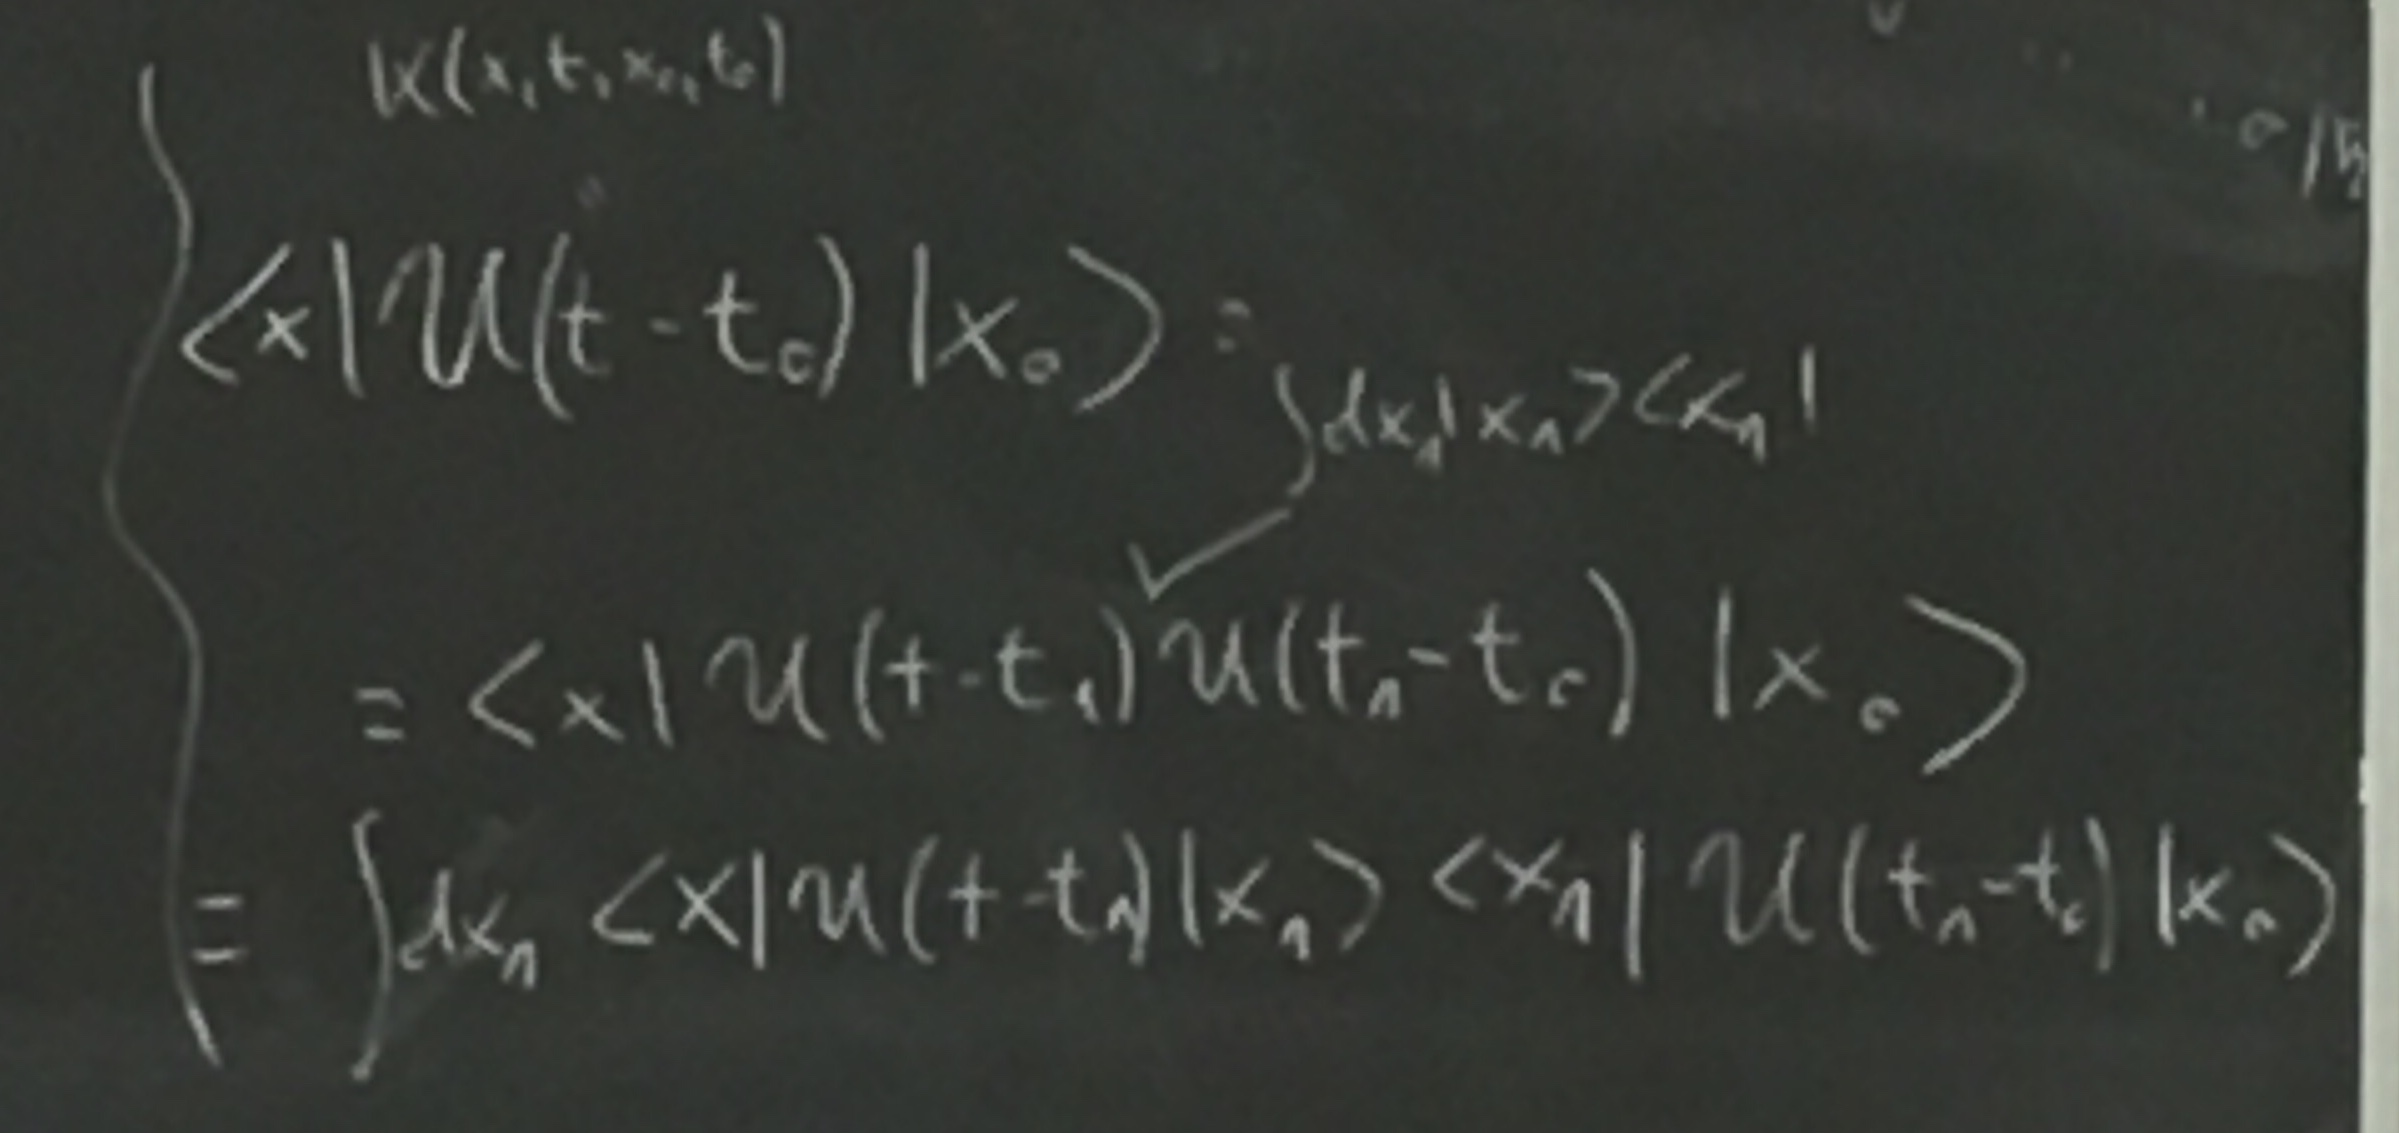 K(x,t,x₀,t₀)
"
<x|U(t-t₀)|x₀> =
∫dx₁|x₁><x₁|
= <x|U(t-t₁)U(t₁-t₀)|x₀>
= ∫dx₁ <x|U(t-t₁)|x₁> <x₁|U(t₁-t₀)|x₀>